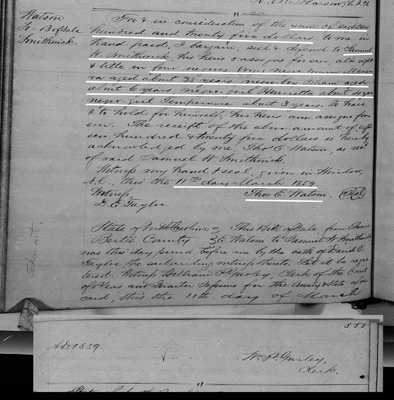 Watson
To Bill Sale
Smithwick.
For & in consideration of the sum of eighteen
hundred and twenty five dollars to me in
hand paid, I bargain, sell & to Samuel
W. Smithwick, his heirs & assigns for ever, all
& title in four negroes
aged about 35 years
about 6 years, negro girl Henrietta about 4 years
negro girl Temperance about 3 years. To have
& to hold for himself, his heirs and assigns for
ever. The receipt of the above amount of eight
een hundred & twenty five dollars is hereby
acknowledged by me, Thos E. Watson, as
of said Samuel W. Smithwick.
Witness my hand & seal, given in Windsor,
N.C., this the 11th day March 1859
Witness Thos E. Watson. (Seal)
D. E. Tayloe
State of North Carolina
Bertie County
This Bill of Sale, from Thomas
E. Watson to Samuel W. Smithwick
was this day proved before me by the oath of David E.
Tayloe the subscribing witness thereto. Let it be regis
tered. Witness William P. Gurley, Clerk of the Court
of Pleas and Quarter Sessions for the County & State afore
said, this the 11th day of March
555
AD 1859
Wm P. Gurley,
Clerk.